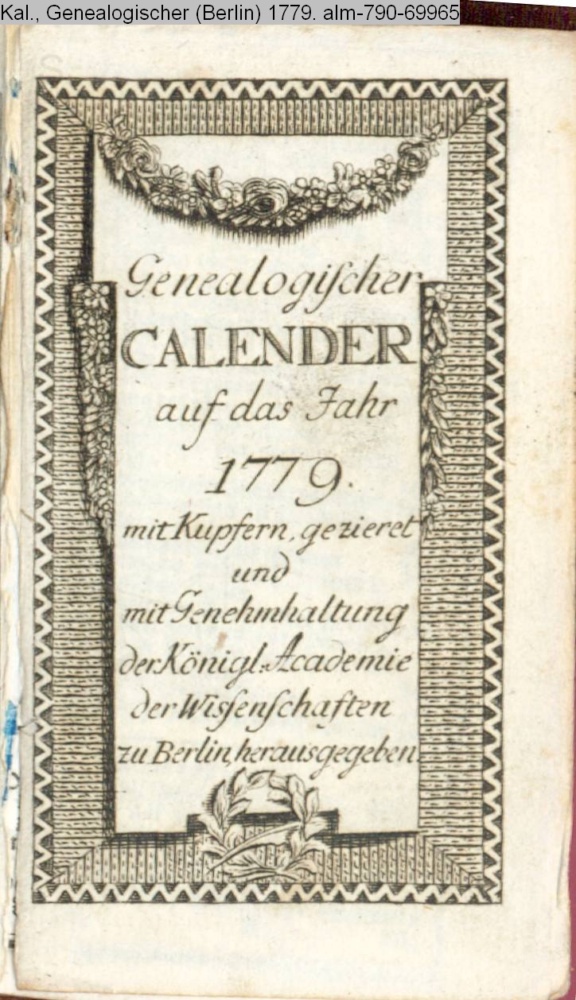 Kal., Genealogischer (Berlin) 1779. alm-790-69965
Genealogiſcher
CALENDER
auf das Jahr
1779.
mit Kupfern, gezieret
und
mit Genehmhaltung
der Königl. Academie
der Wiſſenſchaften
zu Berlin, herausgegeben.